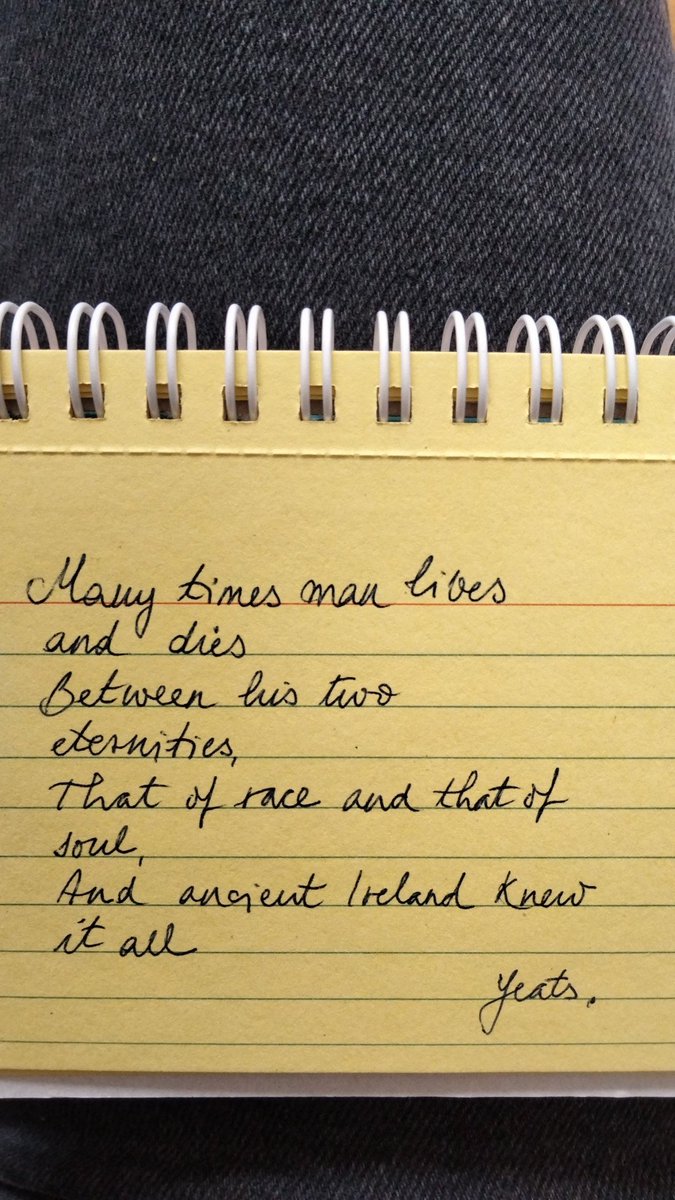 Many times man lives
and dies
Between his two
eternities,
That of race and that of
soul,
And ancient Ireland knew
it all
Yeats.